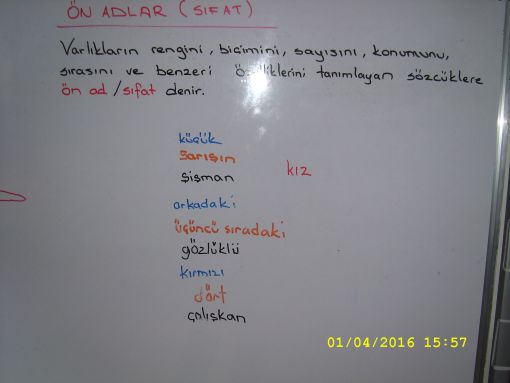 ÖN ADLAR (SIFAT)
Varlıkların rengini, biçimini, sayısını, konumunu,
sırasını ve benzeri özelliklerini tanımlayan sözcüklere
ön ad / sıfat denir.
küçük
sarışın
şişman
kız
arkadaki
üçüncü sıradaki
gözlüklü
kırmızı
dört
çalışkan
01/04/2016 15:57